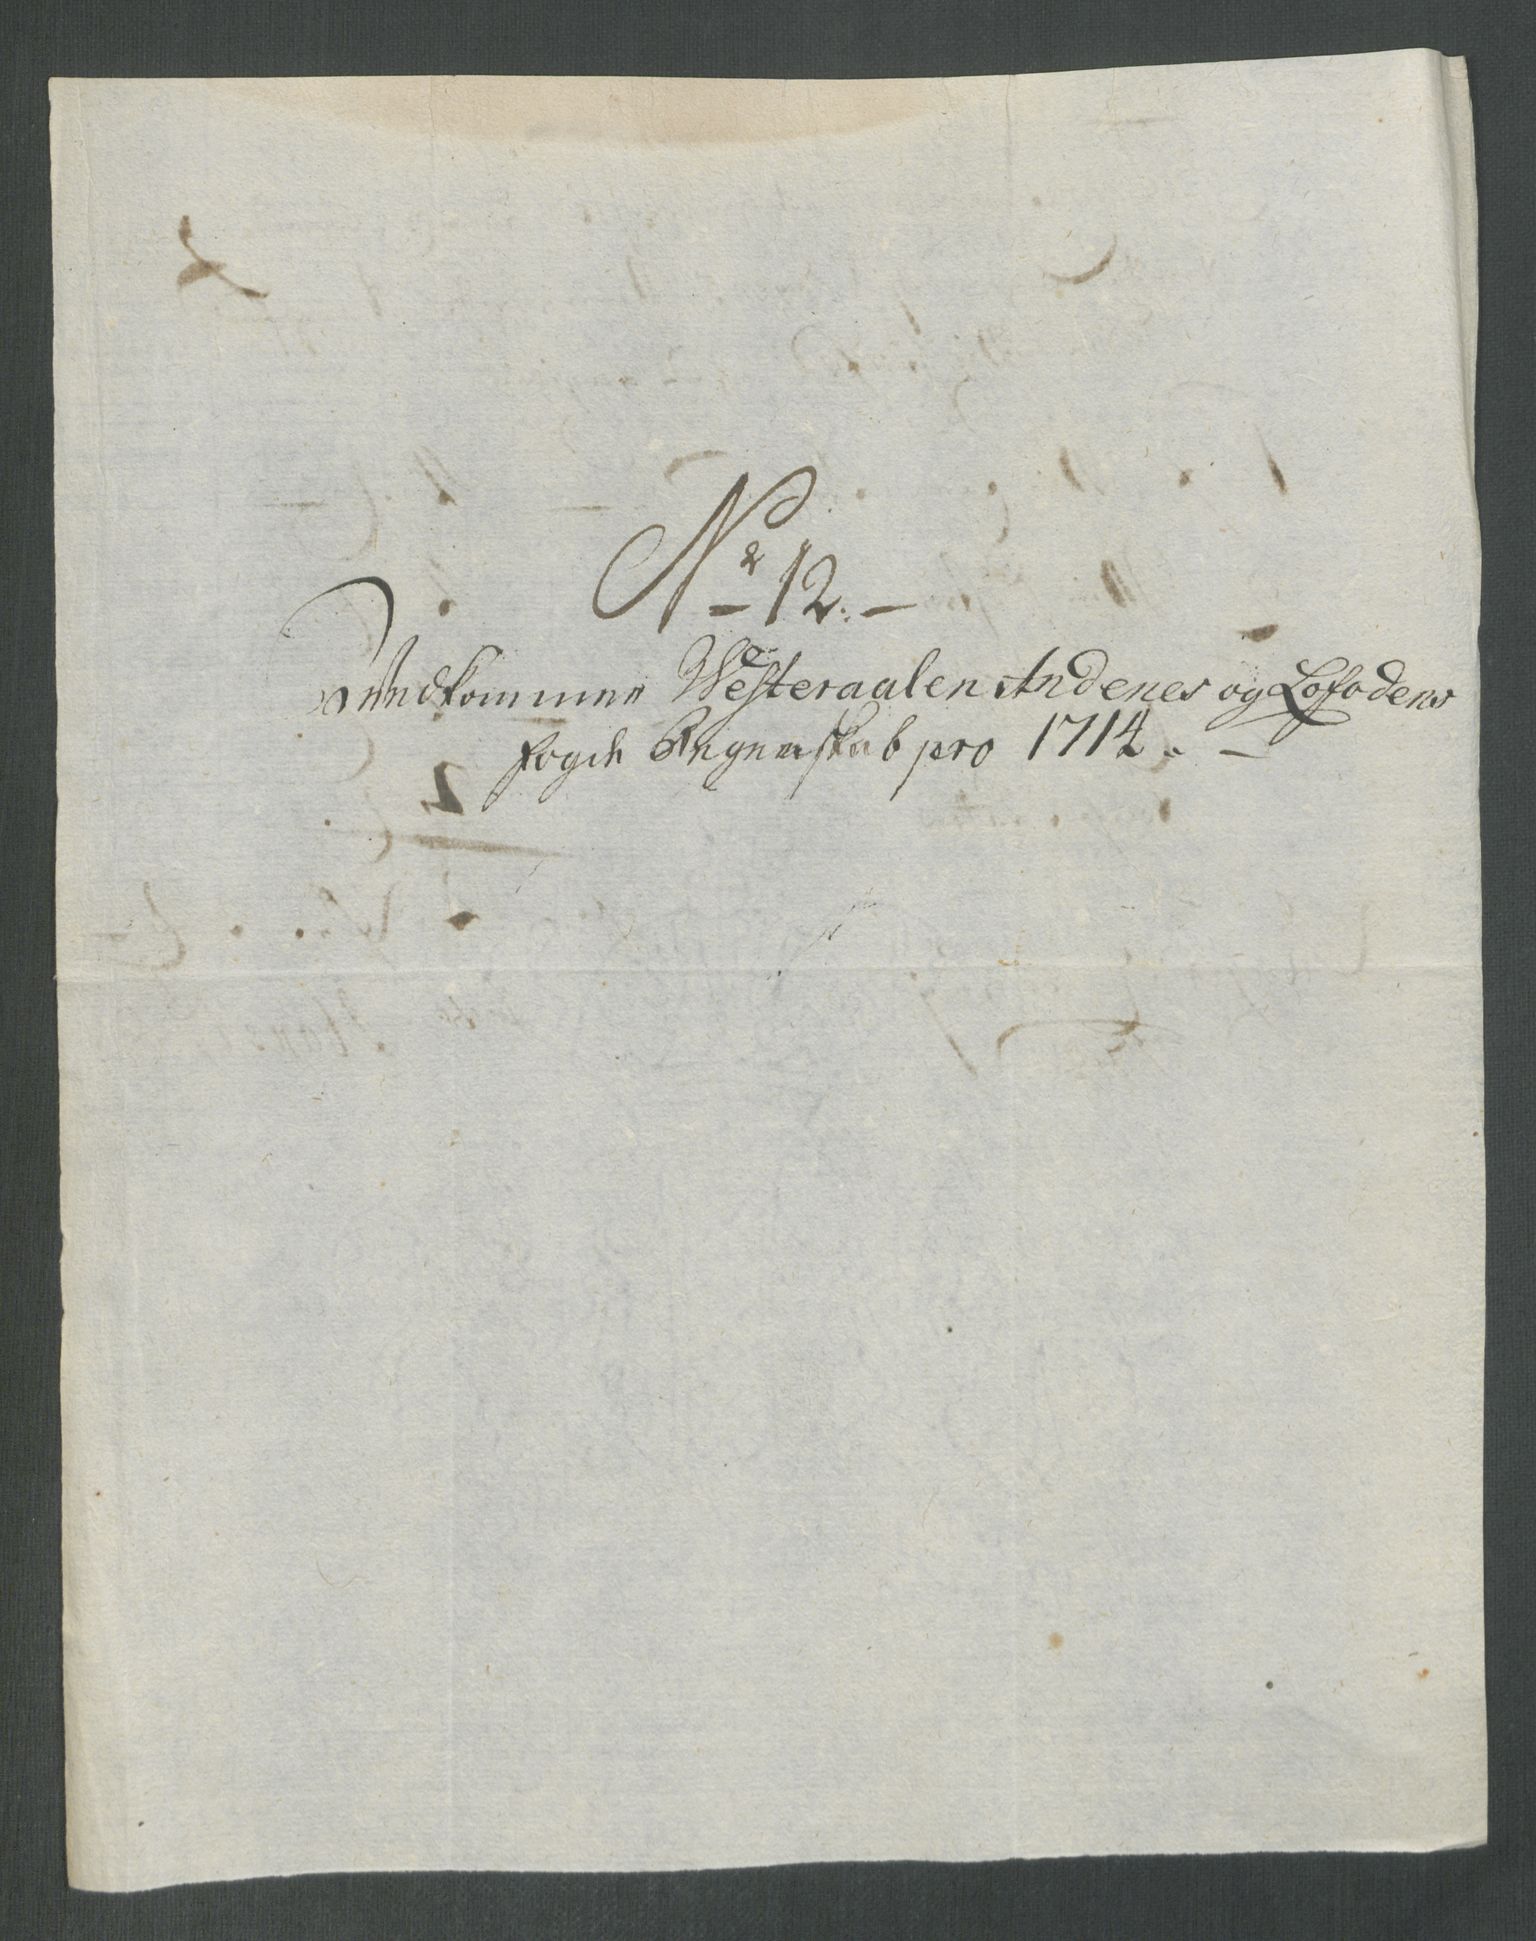 No 12.
Vedkommer Westeraalen Andenes og Lofodens
fogde Regnskab pro 1714.